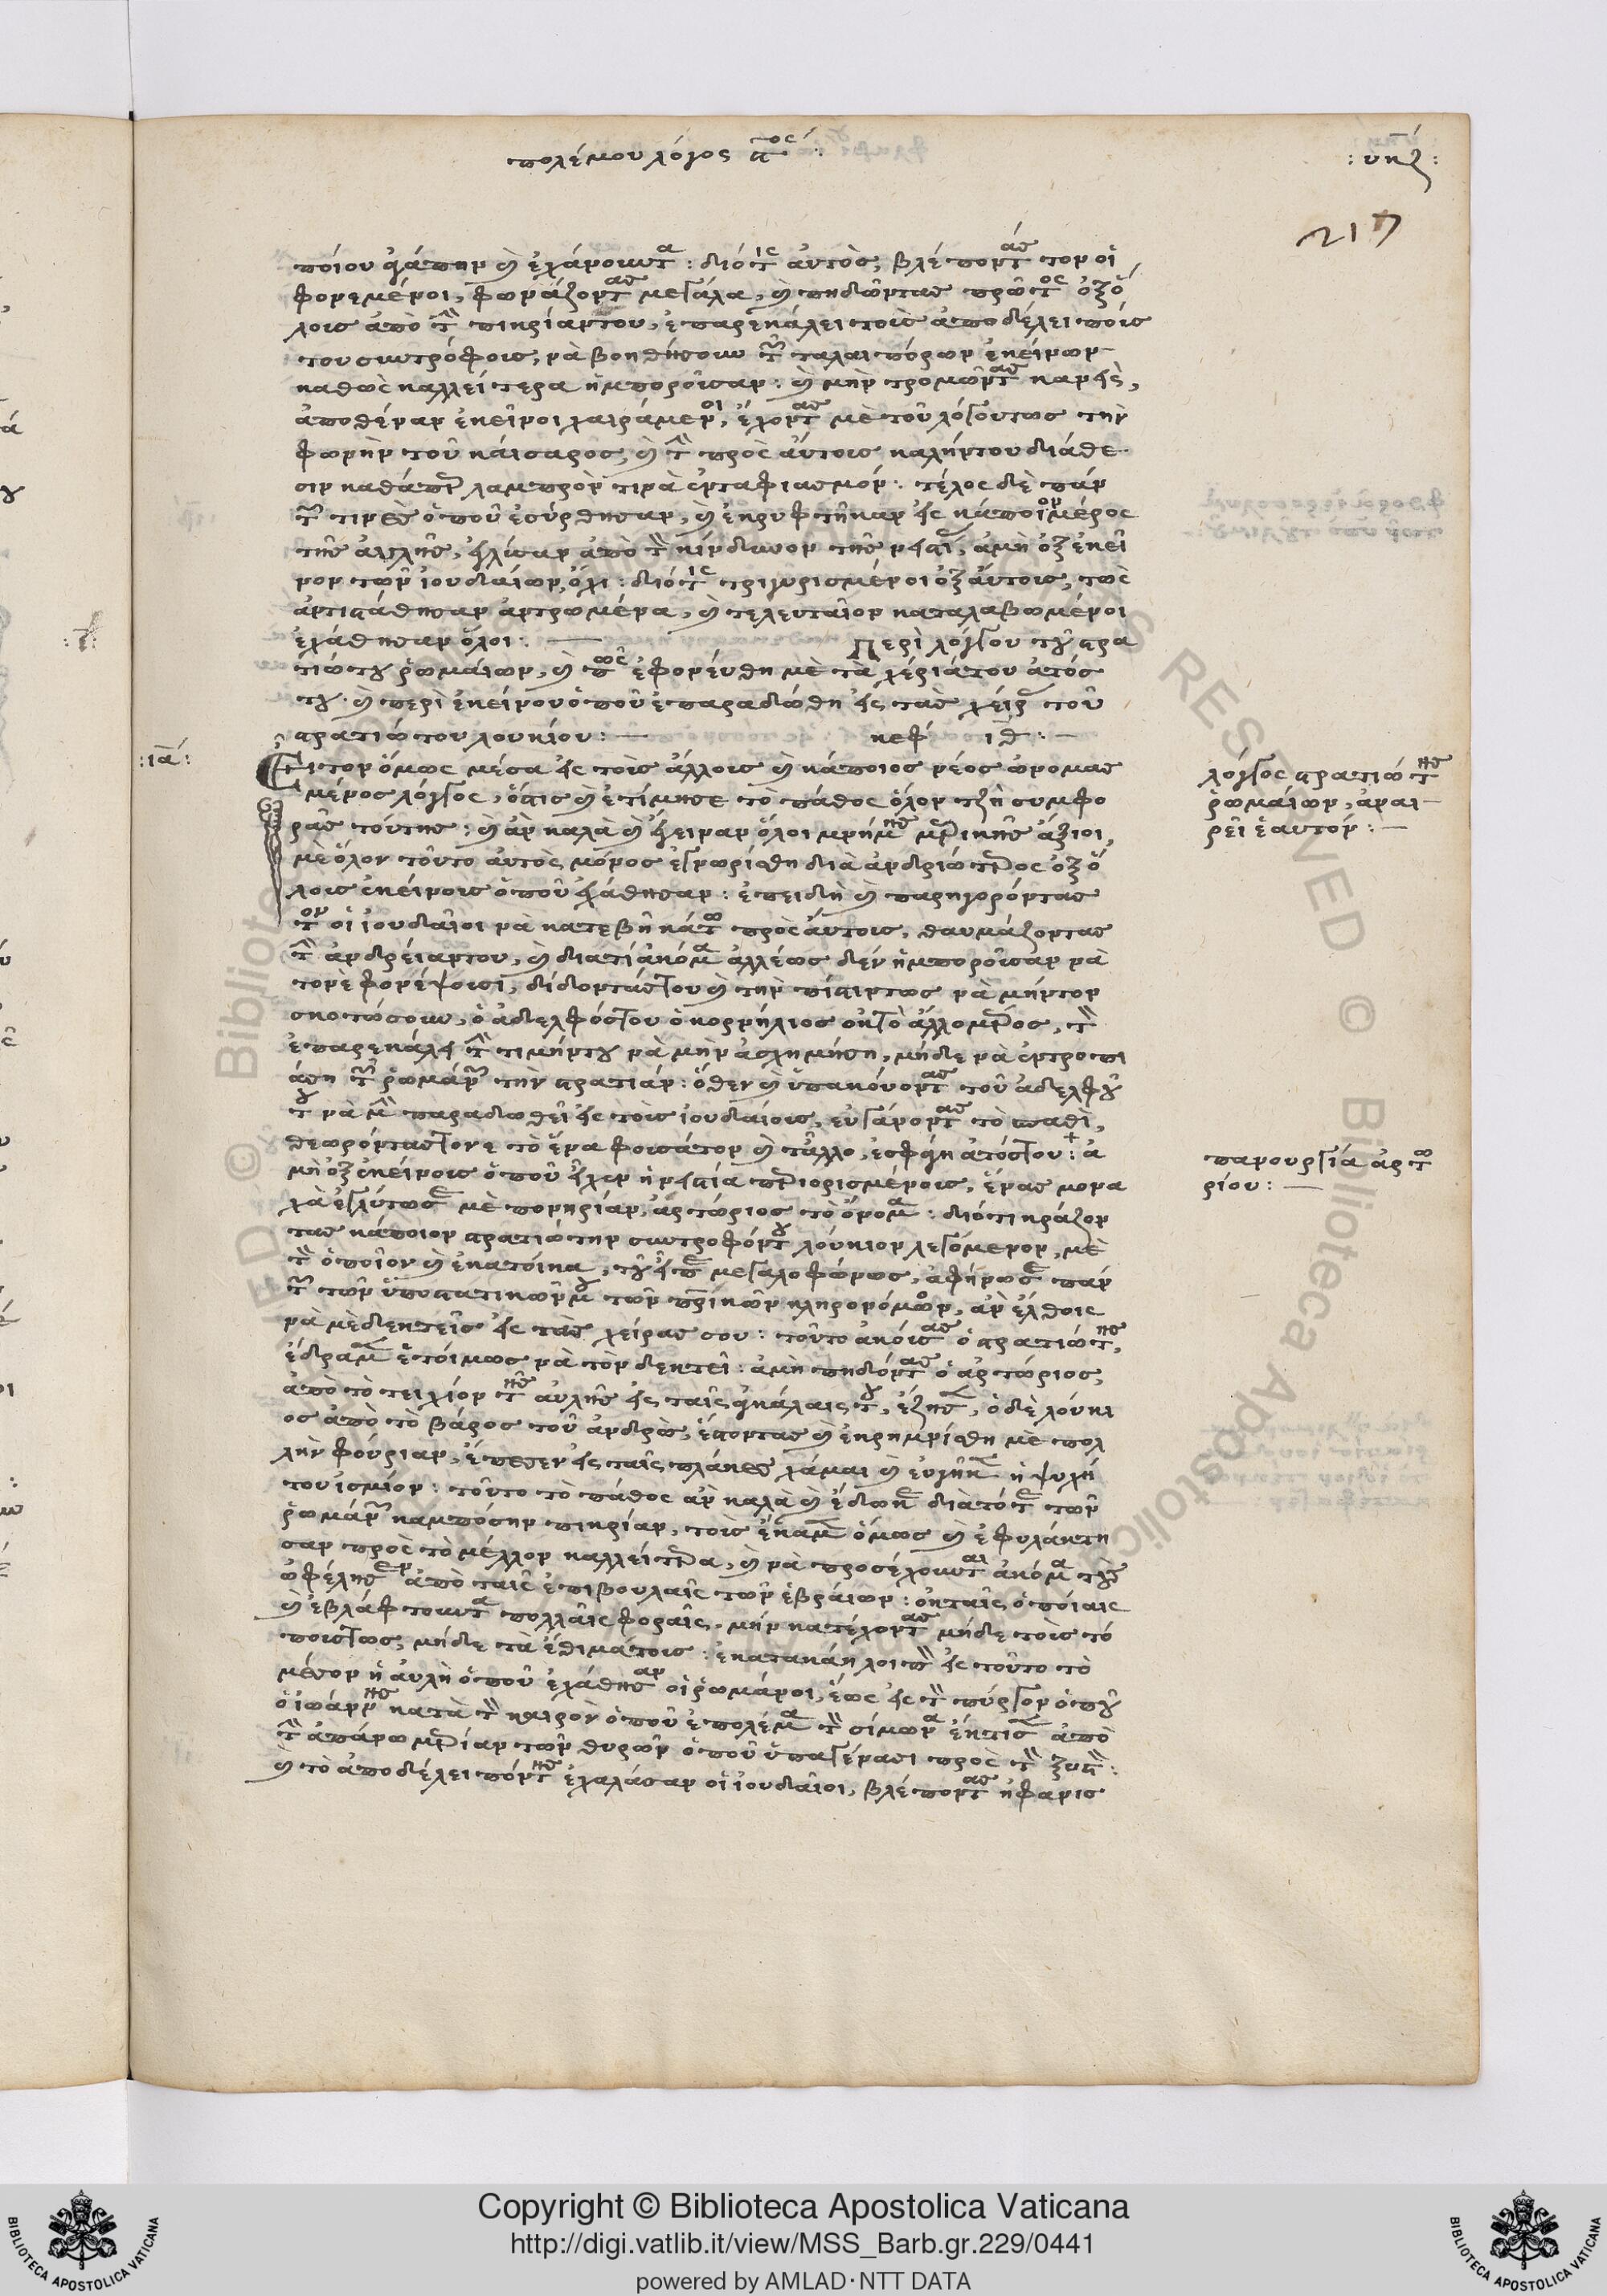 πολέμου λόγος ϛος :
: υκζ :
217
ποίου ἀγάπην καὶ ἐχάνουντα : διότις αὐτὸς, βλέποντάς τον οἱ
φονεμένοι, φωνάζοντας μεγάλα, καὶ πηδῶντας πρῶτος ὀξ ὅ
λους ἀπὸ τὴν πικρίαντου, ἐπαρεκάλει τοὺς ἀποδέλειπούς
του συντρόφους, νὰ βοηθήσουν τῶν ταλαιπόρων ἐκείνων
καθὼς καλλείτερα ἠμποροῦσαν : καὶ μὴν τρομῶντας κανεὶς,
ἀποθέναν ἐκεῖνοι χαιράμενοι, ἔχοντας μὲ τοῦ λόγουτως τὴν
φωνὴν τοῦ καίσαρος, καὶ τὴν πρὸς αὐτους καλήντου διάθε
σιν καθάπερ λαμπρὸν τινὰ ἐνταφιασμόν : τέλος δὲ πάν
των τινὲς ὁποῦ ἐσύρθησαν, καὶ ἐκρυφτῆκαν εἰς κάποιον μέρος
τῆς αὐλῆς, ἐγλίσαν ἀπὸ τὸν κίνδυνον τῆς ἀμὴ ὀξ ἐκεῖ
νον τῶν ἰουδαίων, ὄχι : διότις τριγυρισμένοι ὀξ αὐτους, τῶς
ἀντιστάθησαν ἀντρωμένα, καὶ τελευταῖον καταλαβωμένοι
ἐχάθησαν ὅλοι : — Περὶ λόγγου τοῦ στρα
τιώτου ῥωμαίων, καὶ πῶς ἐφονεύθη μὲ τὰ χέριάτου ἀτός
του. καὶ περὶ ἐκείνου ὁποῦ ἐπαραδώθη εἰς τὰς χείρας τοῦ
στρατιώτου λουκίου : — κεφ ιθ : —
: ια :
Ἦτον ὅμως μέσα εἰς τοὺς ἄλλους καὶ κάποιος νέος ὠνομας
μένος λόγγος, ὅστις καὶ ἐτίμησε τὸ πάθος ὅλον τῆς συμφο
ρᾶς τούτης : καὶ ἂν καλὰ καὶ ὅλοι μνήμης μερικῆς ἄξιοι,
μὲ ὅλον τοῦτο αὐτὸς μόνος ἐγνωρίσθη διὰ ἀνδριώτερος ὀξ ὅ
λους ἐκείνους ὁποῦ ἐχάθησαν : ἐπειδὴ καὶ παρηγορόντας
τον οἱ ἰουδαῖοι νὰ κατεβῆ κάτω πρὸς αὐτους, θαυμάζοντας
τὴν ἀνδρείαντου, καὶ διατὶ ἀκόμα ἀλλέως δὲν ἠμποροῦσαν νὰ
τονὲ φονέψουσι, δίδοντάςτου καὶ τὴν πίστιντως νὰ μήντον
σκοτώσουν, ὁ ἀδελφόςτου ὁ κορνήλιος τὸν
ἐπαρεκάλει τὴν τιμήντου νὰ μὴν ἀσχημήση, μήδε νὰ ἐντροπι
άση τῶν ῥωμάνων τὴν στρατιάν : ὅθεν καὶ ὑπακούοντας τοῦ ἀδελφοῦ
του νὰ μὴν παραδωθεῖ εἰς τοὺς ἰουδαίους, εὐγάνοντας τὸ σπαθὶ,
θεωρόντας τὸ ἕνα φουσάτον καὶ τἄλλο, ἐσφάγη ἀτόςτου : ἀ
μὴ ὀξ ἐκείνους ὁποῦ εἶχεν ἡ περιορισμένους, ἕνας μονα
χὰ ἐγλύτωσε μὲ πονηρίαν, ἀρτώριος τὸ ὄνομα : διότι κράζον
τας κάποιον στρατιώτην συντροφόντου λούκιον λεγόμενον, μὲ
τὸν ὁποῖον καὶ ἐκατοίκα, τοῦ εἶπε μεγαλοφώνως, ἀφήνωσε πάν
των τῶν ὑποστατικῶνμου τῶν κληρονόμον, ἂν ἔλθοις
νὰ μὲ δεκτεῖς εἰς τὰς χείρας σου : τοῦτο ἀκούσας ὁ στρατιώτης,
ἔδραμεν ἑτοίμως νὰ τὸν δεκτεῖ : ἀμὴ πηδόντας ὁ ἀρτώριος,
ἀπὸ τὸ τειχίον τῆς αὐλῆς εἰς ταῖς ἀγκάλαιςτου, ἔζησεν, ὁ δὲ λούκι
ος ἀπὸ τὸ βάρος τοῦ ἀνδρὸς, ἔστοντας καὶ ἐκρημνίσθη μὲ πολ
λὴν φούριαν, ἔπεσεν εἰς ταῖς πλάκες χάμαι καὶ εὐγῆκεν ἡ ψυχή
του ἰσμίον : τοῦτο τὸ πάθος ἂν καλὰ καὶ ἔδωκε διὰ τότε τῶν
ῥωμάνων καμπόσην πικρίαν, τοὺς ἔκαμεν ὅμως καὶ ἐφυλάκτη
σαν πρὸς τὸ μέλλον καλλείτερα, καὶ νὰ προσέχουνται ἀκόμα τοὺς
ὠφέλησεν ἀπὸ ταῖς ἐπιβουλαῖς τῶν ἑβραίων : ὁποίαις
καὶ ἐβλάφτουντα πολλαῖς φοραῖς, μὴν κατέχοντας μήδε τοὺς τό
πουςτως, μήδε τὰ ἔθιμάτους : ἐκατακάη λοιπὸν εἰς τοῦτο τὸ
μέσον ἡ αὐλὴ ὁποῦ ἐχάθησαν οἱ ῥωμάνοι, ἕως εἰς τὸν πύργον ὁποῦ
ὁ ἰωάννης κατὰ τὸν καιρὸν ὁποῦ ἐπολέμα τὸν σίμωνα ἔκτισεν ἀπὸ
τὴν ἀπάνω μερίαν τῶν θυρῶν ὁποῦ ὑπαγένασι πρὸς τὸν ξυστὸν :
καὶ τὸ ἀποδέλειπόντης ἐχαλάσαν οἱ ἰουδαῖοι, βλέποντας ἠφανισ
λόγγος στρατιώτης
ῥωμαίων, ἀναι
ρεῖ ἑαυτόν : —
πανουργία ἀρτω
ρίου : —
Copyright © Biblioteca Apostolica Vaticana
http://digi.vatlib.it/view/MSS_Barb.gr.229/0441
powered by AMLAD·NTT DATA
BIBLIOTECA APOSTOLICA VATICANA
BIBLIOTECA APOSTOLICA VATICANA